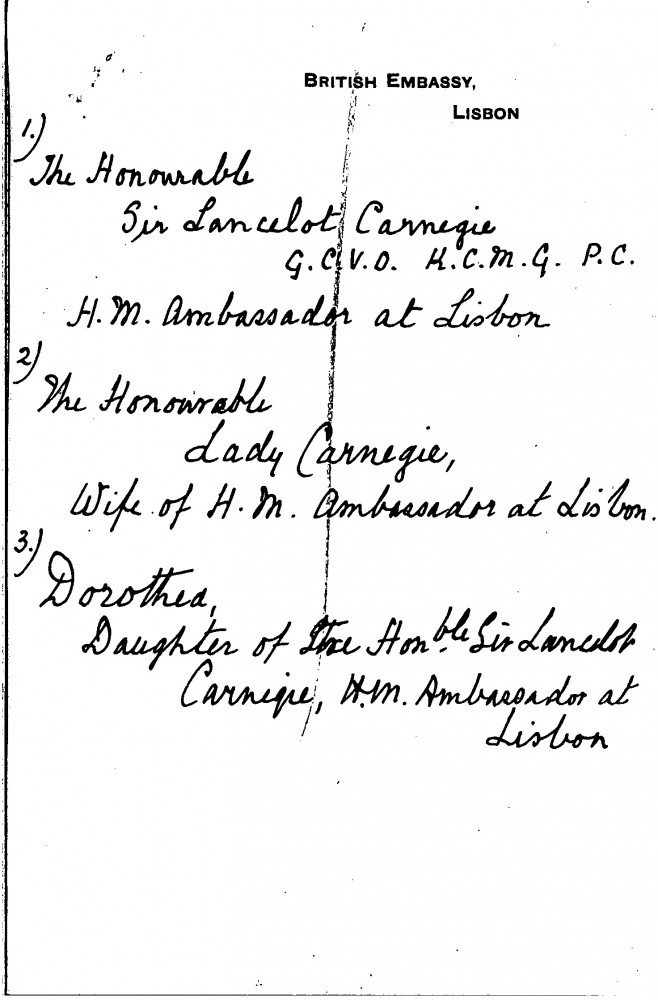 BRITISH EMBASSY,
LISBON
1.)
The Honourable
Sir Lancelot Carnegie
G.C.V.O. K.C.M.G. P.C.
H.M. Ambassador at Lisbon
2)
The Honourable
Lady Carnegie,
Wife of H.M. Ambassador at Lisbon.
3.)
Dorothea,
Daughter of The Honble. Sir Lancelot
Carnegie, H.M. Ambassador at
Lisbon